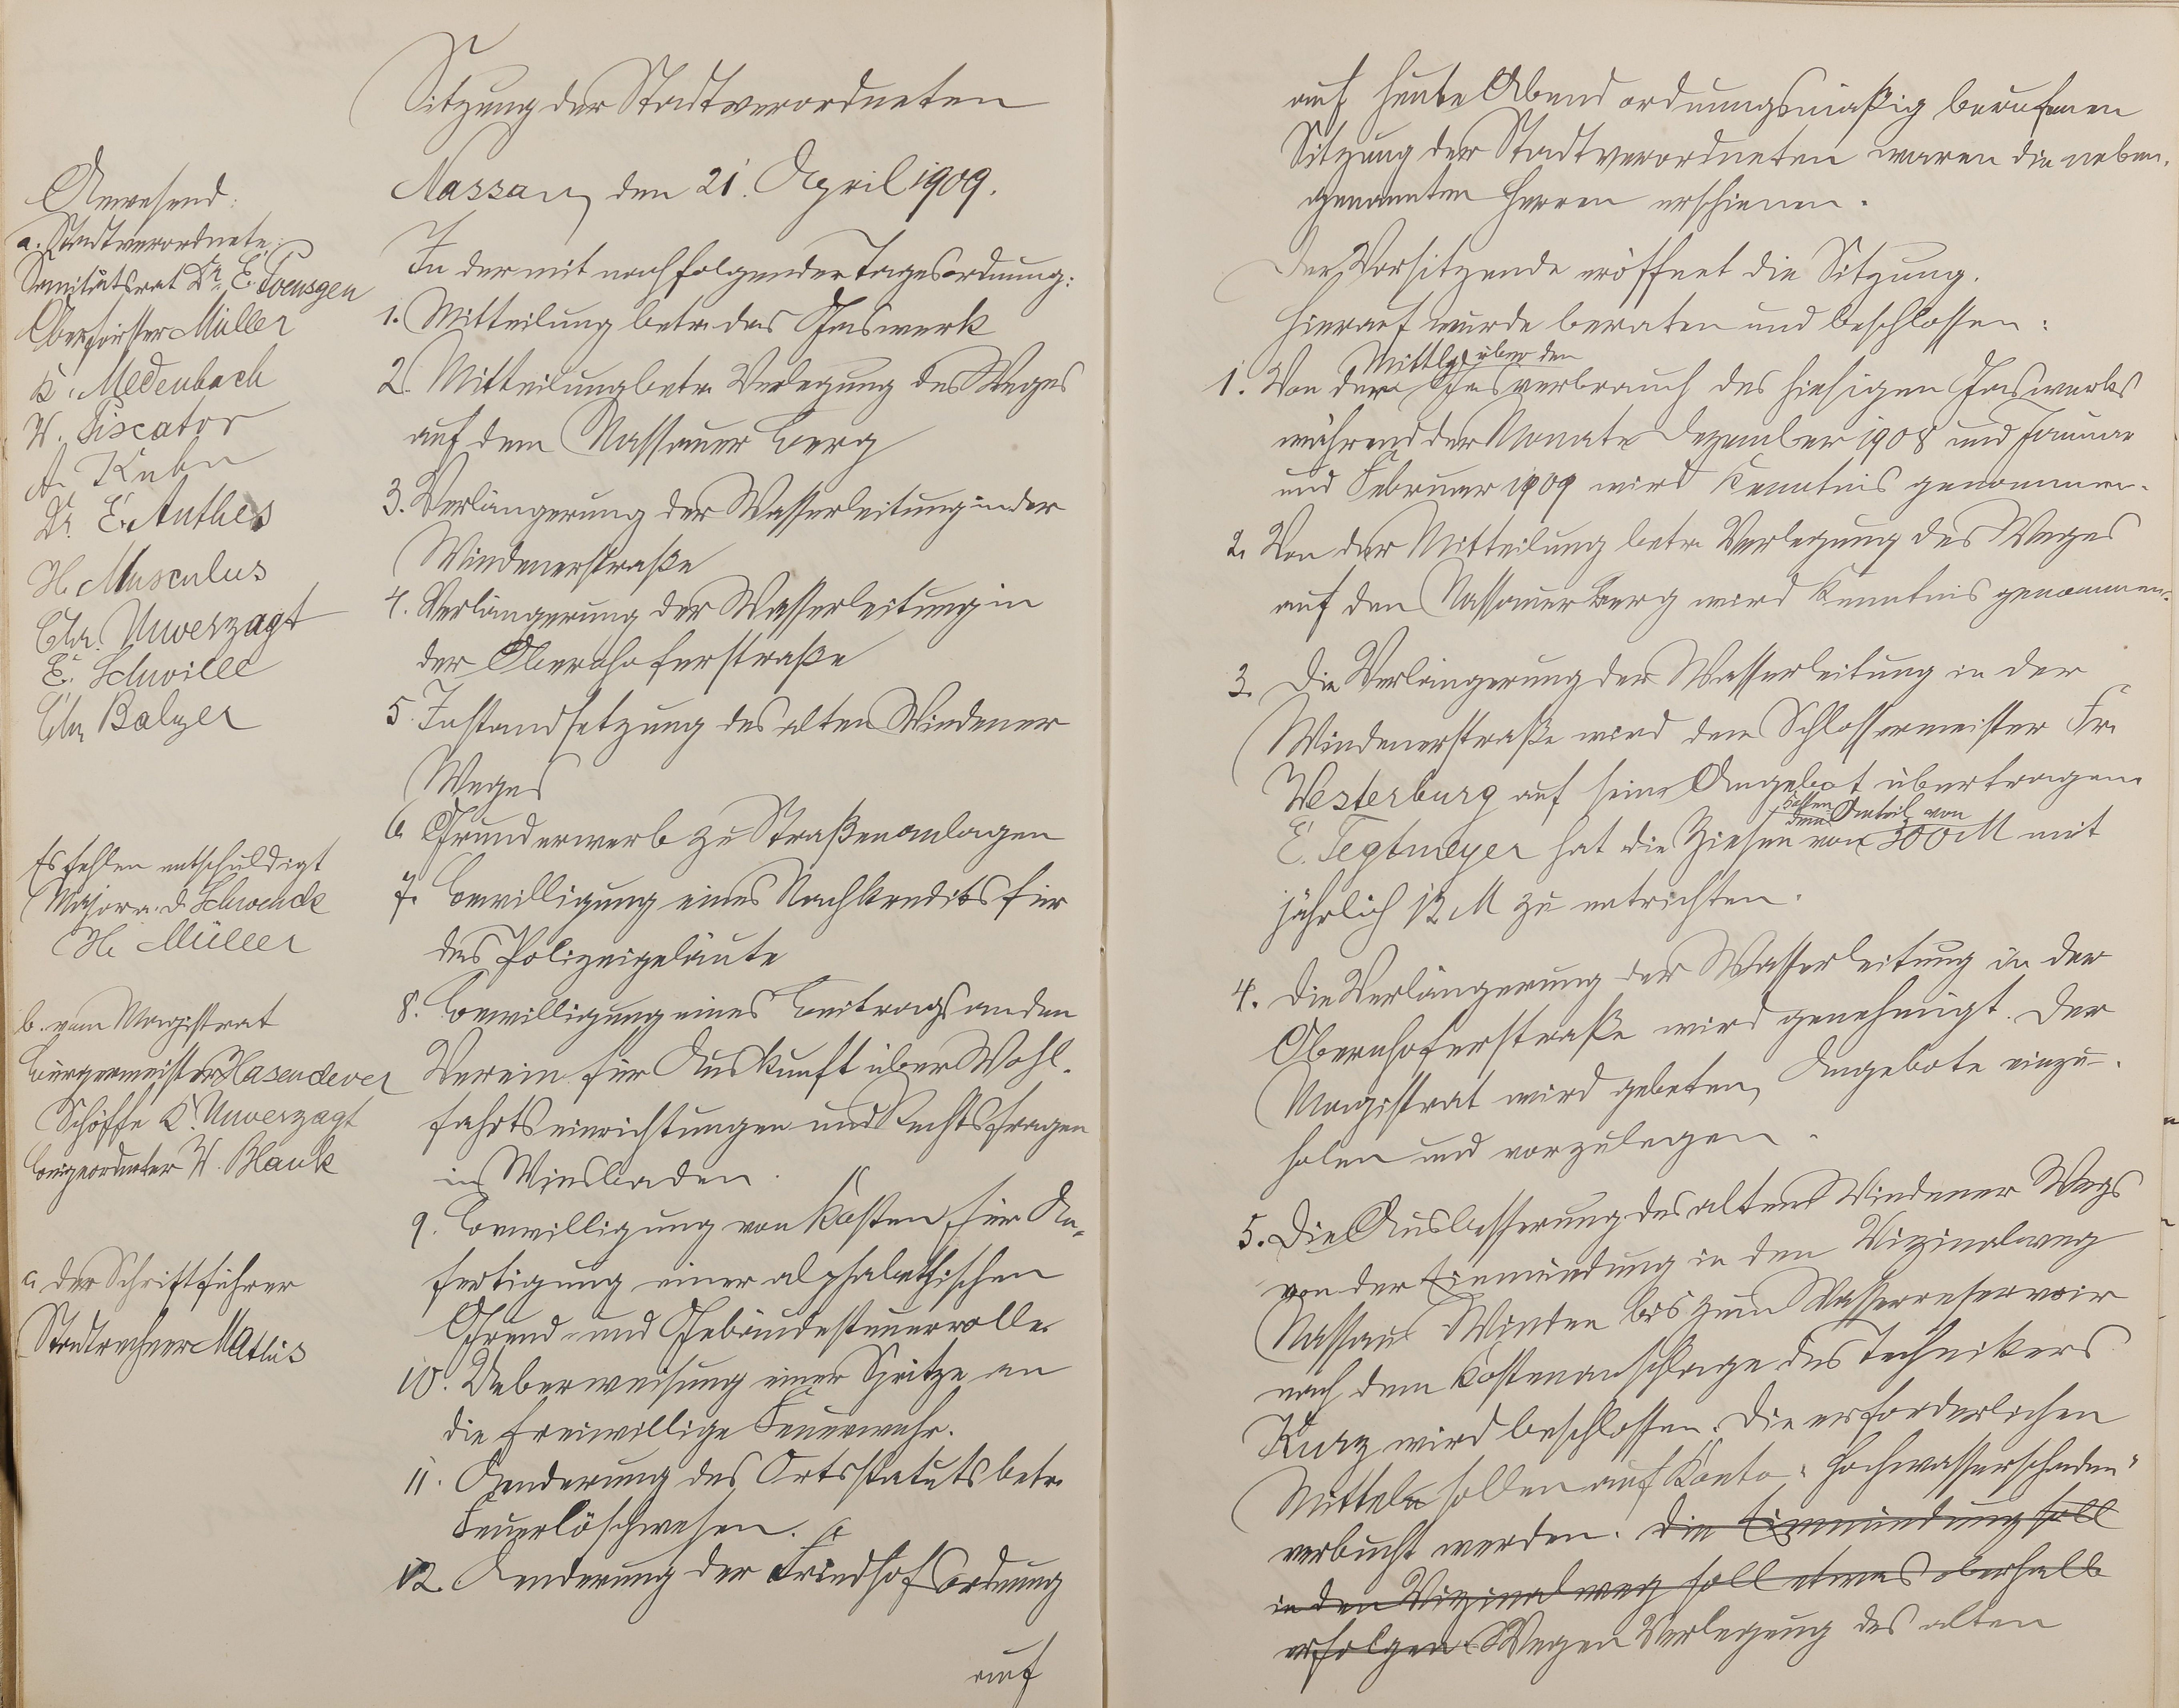 Sitzung der Stadtverordneten
Nassau, den 21. April 1909.
Anwesend:
a. Stadtverordnete:
Sanitätsrat Dr. E.
Oberförster Müller
K. Medenbach
W. Piscator
A. Kuhn
Dr. E. Anthes
H. Musculus
Chr. Unverzagt
E. Schwille
Chr. Balzer
Es fehlen entschuldigt
Major a. D. Schwenck
H. Müller
b. vom Magistrat
Bürgermeister Hasenclever
Schöffe K. Unverzagt
Beigeordneter W. Blank
c. der Schriftführer
Stadtrechner
In der mit nachfolgender Tagesordnung:
1. Mitteilung betr. das Gaswerk
2. Mitteilung betr. Verlegung des Weges
auf dem Nassauer Berg
3. Verlängerung der Wasserleitung in der
Windenerstraße
4. Verlängerung der Wasserleitung in
der Obernhoferstraße
5. Instandsetzung des alten Windener
Weges
6. Grunderwerb zu Straßenanlagen
7. Bewilligung eines Nachkredits für
das Polizeigeläute
8. Bewilligung eines Beitrags an den
Verein für Auskunft über Wohl-
fahrtseinrichtungen und Rechtsfragen
in Wiesbaden.
9. Bewilligung von Kosten für An-
fertigung einer alphabethischen
Grund- und Gebäudesteuerrolle.
10. Ueberweisung einer Spritze an
die freiwillige Feuerwehr.
11. Aenderung des Ortsstatuts betr.
Feuerlöschwesen.
12. Aenderung der Friedhofsordnung
auf
auf heute Abend ordnungsmäßig berufenen
Sitzung der Stadtverordneten waren die neben-
genannten Herren erschienen.
Der Vorsitzende eröffnet die Sitzung.
Hierauf wurde beraten und beschlossen:
Mittlg über den
1. Von der Gasverbrauch des hiesigen Gaswerks
während der Monate Dezember 1908 und Januar
und Februar 1909 wird Kenntnis genommen.
2. Von der Mitteilung betr. Verlegung des Weges
auf den Nassauer Berg wird Kenntnis genommen.
3. Die Verlängerung der Wasserleitung in der
Windenerstraße wird dem Schlossermeister Fr.
Westerburg auf seine Angebot übertragen.
Anteil von
E. Tegtmeyer hat die Zinsen von 300 M mit
jährlich 12 M zu entrichten.
4. Die Verlängerung der Wasserleitung in der
Obernhoferstraße wird genehmigt. Der
Magistrat wird gebeten, Angebote einzu-
holen und vorzulegen.
5. Die Ausbesserung des alten Windener Wegs
von der Einmündung in den Vizinalweg
Nassau Winden bis zum Wasserreservoir
nach dem Kostenanschlage des Technikers
Kurz wird beschlossen. Die erforderlichen
Mitteln sollen auf Konto „Hochwasserschaden“
verbucht werden. Die Einmündung soll
in den Vizinalweg soll etwas oberhalb
erfolgen Wegen Verlegung des alten